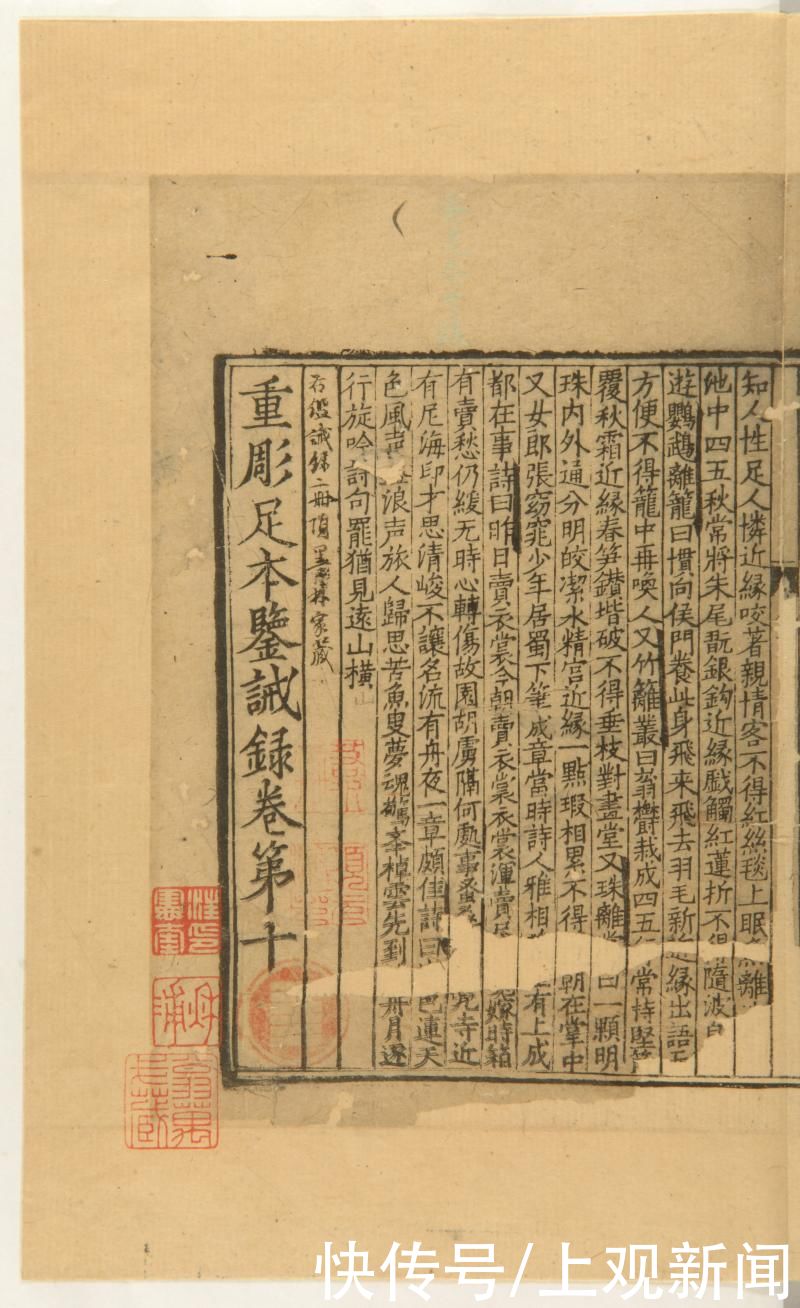 知人性足人憐近縁咬著親情客不得紅絲毯上眠 離
池中四五秋常將朱尾翫銀鉤近縁戯觸紅蓮折不得隨波
遊鸚鵡離籠曰慣向侯門養此身飛來飛去羽毛新 縁出語
方便不得籠中再喚人又竹離叢曰蓊欝栽成四五行常持堅
覆秋霜近縁春笋鑚堦破不得垂枝對畫堂又珠離掌曰一顆明
珠内外通分明皎潔水精宮近縁一點瑕相累不得朝在掌中
又女郎張窈窕少年居蜀下筆成章當時詩人雅相 有上成
都在事詩曰昨日賣衣裳今朝賣衣裳衣裳渾賣 嫁時箱
有賣愁仍緩无時心轉傷故園胡虜隔何處事蚕 尼寺近
有尼海印才思清峻不讓名流有舟夜一章頗佳詩曰 巴連天
色風声 浪声旅人歸思苦魚叟夢魂驚 棹雲先到 舟月逐
行旋吟詩句罷猶見遠山橫
右鑑誡録二册項墨林家藏
重彫足本鑒誡録卷第十
快传号/上观新闻